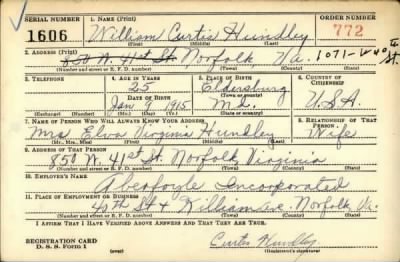 SERIAL NUMBER 1. NAME (Print) ORDER NUMBER
1606 William Curtis Hundley 772
(First) (Middle) (Last)
2. ADDRESS (Print)
850 W. 41st St. Norfolk, Va. 1071-W 40 St.
(Number and street or R. F. D. number) (Town) (County) (State)
3. TELEPHONE 4. AGE IN YEARS 5. PLACE OF BIRTH 6. COUNTRY OF CITIZENSHIP
25 Eldersburg
DATE OF BIRTH (Town or county)
Jan 8 1915 Md. U.S.A.
(Exchange) (Number) (Mo.) (Day) (Yr.) (State or country)
7. NAME OF PERSON WHO WILL ALWAYS KNOW YOUR ADDRESS 8. RELATIONSHIP OF THAT PERSON
Mrs Elva Virginia Hundley Wife
(Mr., Mrs., Miss) (First) (Middle) (Last)
9. ADDRESS OF THAT PERSON
850 W. 41st St. Norfolk Virginia
(Number and street or R. F. D. number) (Town) (County) (State)
10. EMPLOYER'S NAME
Aberfoyle Incorporated
11. PLACE OF EMPLOYMENT OR BUSINESS
40th St + Killam ave. Norfolk Va.
(Number and street or R. F. D. number) (Town) (County) (State)
I AFFIRM THAT I HAVE VERIFIED ABOVE ANSWERS AND THAT THEY ARE TRUE.
REGISTRATION CARD
D. S. S. Form 1 Curtis Hundley
(Registrant's signature)